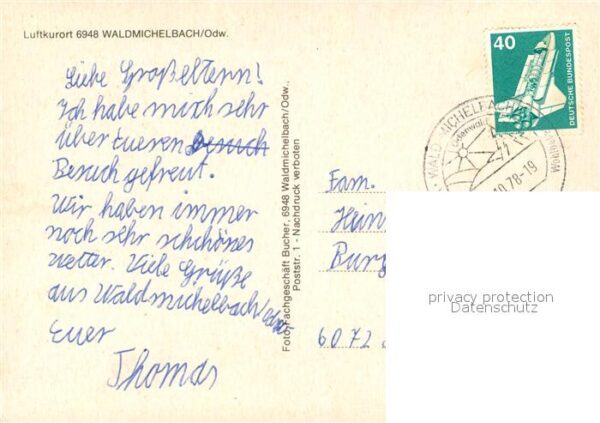 Luftkurort 6948 WALDMICHELBACH/Odw.
Liebe Großeltern!
Ich habe mich sehr
über eueren besuch
Besuch gefreut.
Wir haben immer
noch sehr schönes
wetter. Viele Grüße
aus Waldmichelbach/odw.
Euer
Thomas
Foto: Fachgeschäft Bucher, 6948 Waldmichelbach/Odw.,
Poststr. 1 - Nachdruck verboten
40
DEUTSCHE BUNDESPOST
WALD-MICHELBACH
Odenwald
.10.78-19
Fam.
Hein
Burg
6072
privacy protection
Datenschutz